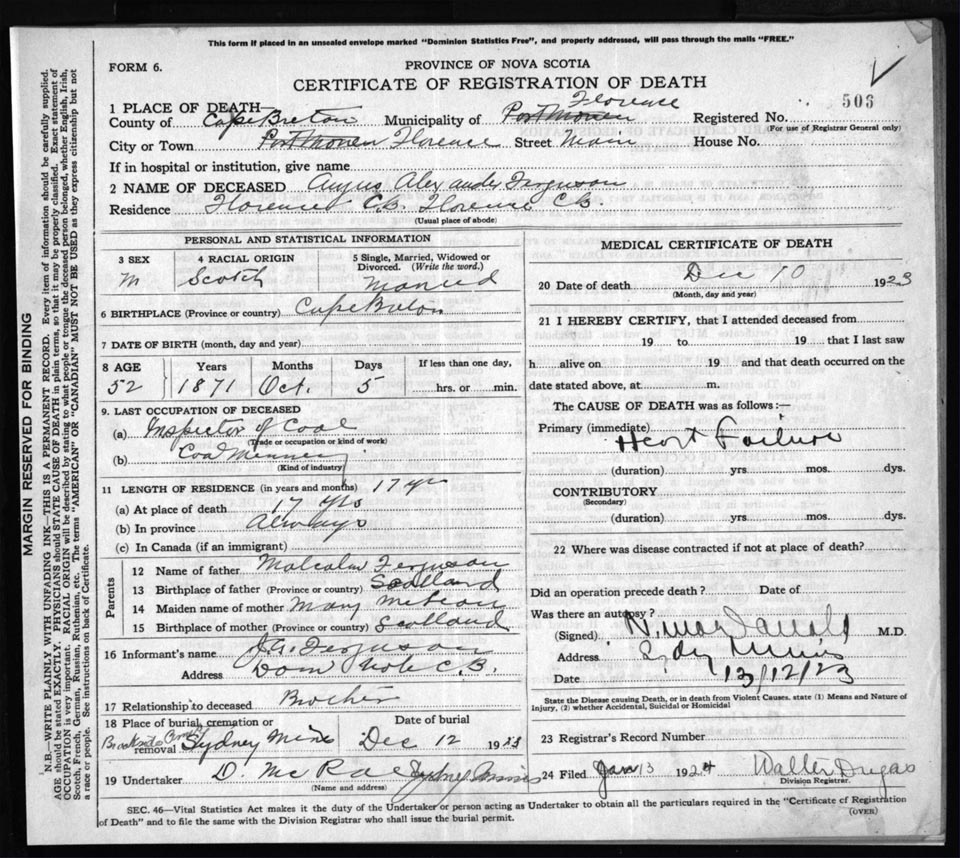 This form if placed in an unsealed envelope marked "Dominion Statistics Free", and properly addressed, will pass through the mails "FREE."
FORM 6.
PROVINCE OF NOVA SCOTIA
CERTIFICATE OF REGISTRATION OF DEATH
503
1 PLACE OF DEATH
Florence
County of Cape Breton Municipality of Port Morien Registered No.
(For use of Registrar General only)
City or Town Port Morien Florence Street Main House No.
If in hospital or institution, give name
2 NAME OF DECEASED Angus Alexander Ferguson
Residence Florence C.B. Florence C.B.
(Usual place of abode)
PERSONAL AND STATISTICAL INFORMATION
3 SEX 4 RACIAL ORIGIN 5 Single, Married, Widowed or Divorced. (Write the word.)
M Scotch Married
6 BIRTHPLACE (Province or country) Cape Breton
7 DATE OF BIRTH (month, day and year)
8 AGE Years Months Days If less than one day,
52 1871 Oct. 5 hrs. or min.
9. LAST OCCUPATION OF DECEASED
(a) Inspector of Coal
(Trade or occupation or kind of work)
(b) Coal
(Kind of industry)
11 LENGTH OF RESIDENCE (in years and months) 17 yr
(a) At place of death 17 yrs
(b) In province Always
(c) In Canada (if an immigrant)
Parents
12 Name of father Malcolm Ferguson
13 Birthplace of father (Province or country) Scotland
14 Maiden name of mother Mary McLean
15 Birthplace of mother (Province or country) Scotland
16 Informant's name Ferguson
Address Dom C.B.
17 Relationship to deceased Brother
18 Place of burial, cremation or removal Sydney Mines
Date of burial
Dec 12 1923
19 Undertaker D. McRae Sydney Mines
(Name and address)
MEDICAL CERTIFICATE OF DEATH
20 Date of death Dec 10 1923
(Month, day and year)
21 I HEREBY CERTIFY, that I attended deceased from
19 to 19 that I last saw
h alive on 19 and that death occurred on the
date stated above, at m.
The CAUSE OF DEATH was as follows :—
Primary (immediate) Heart Failure
(duration) yrs. mos. dys.
CONTRIBUTORY
(Secondary)
(duration) yrs. mos. dys.
22 Where was disease contracted if not at place of death?
Did an operation precede death? Date of
Was there an autopsy?
(Signed) M.D.
Address Sydney Mines
Date 13/12/23
State the Disease causing Death, or in death from Violent Causes, state (1) Means and Nature of
Injury, (2) whether Accidental, Suicidal or Homicidal
23 Registrar's Record Number
24 Filed Jan 13 1924 Walter Dugas
Division Registrar.
SEC. 46—Vital Statistics Act makes it the duty of the Undertaker or person acting as Undertaker to obtain all the particulars required in the "Certificate of Registration
of Death" and to file the same with the Division Registrar who shall issue the burial permit.
(OVER)
MARGIN RESERVED FOR BINDING
N.B.—WRITE PLAINLY WITH UNFADING INK—THIS IS A PERMANENT RECORD. Every item of information should be carefully supplied.
AGE should be stated EXACTLY. PHYSICIANS should STATE CAUSE OF DEATH in plain terms, so that it may be properly classified. Exact statement of
OCCUPATION is very important. RACIAL ORIGIN will be described by stating to what people or tongue the deceased person belonged, whether English, Irish,
Scotch, French, German, Russian, Ruthenian, etc. The terms "AMERICAN" or "CANADIAN" MUST NOT BE USED as they express citizenship but not
a race or people. See instructions on back of Certificate.